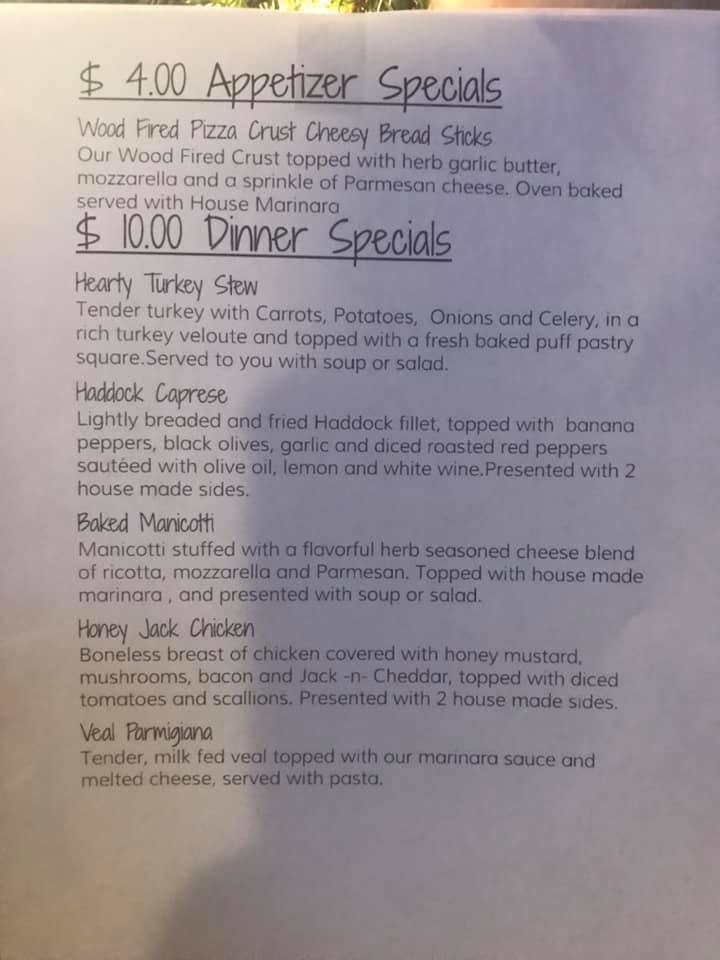 $ 4.00 Appetizer Specials
Wood Fired Pizza Crust Cheesy Bread Sticks
Our Wood Fired Crust topped with herb garlic butter,
mozzarella and a sprinkle of Parmesan cheese. Oven baked
served with House Marinara
$ 10.00 Dinner Specials
Hearty Turkey Stew
Tender turkey with Carrots, Potatoes, Onions and Celery, in a
rich turkey veloute and topped with a fresh baked puff pastry
square.Served to you with soup or salad.
Haddock Caprese
Lightly breaded and fried Haddock fillet, topped with banana
peppers, black olives, garlic and diced roasted red peppers
sautéed with olive oil, lemon and white wine.Presented with 2
house made sides.
Baked Manicotti
Manicotti stuffed with a flavorful herb seasoned cheese blend
of ricotta, mozzarella and Parmesan. Topped with house made
marinara , and presented with soup or salad.
Honey Jack Chicken
Boneless breast of chicken covered with honey mustard,
mushrooms, bacon and Jack -n- Cheddar, topped with diced
tomatoes and scallions. Presented with 2 house made sides.
Veal Parmigiana
Tender, milk fed veal topped with our marinara sauce and
melted cheese, served with pasta.